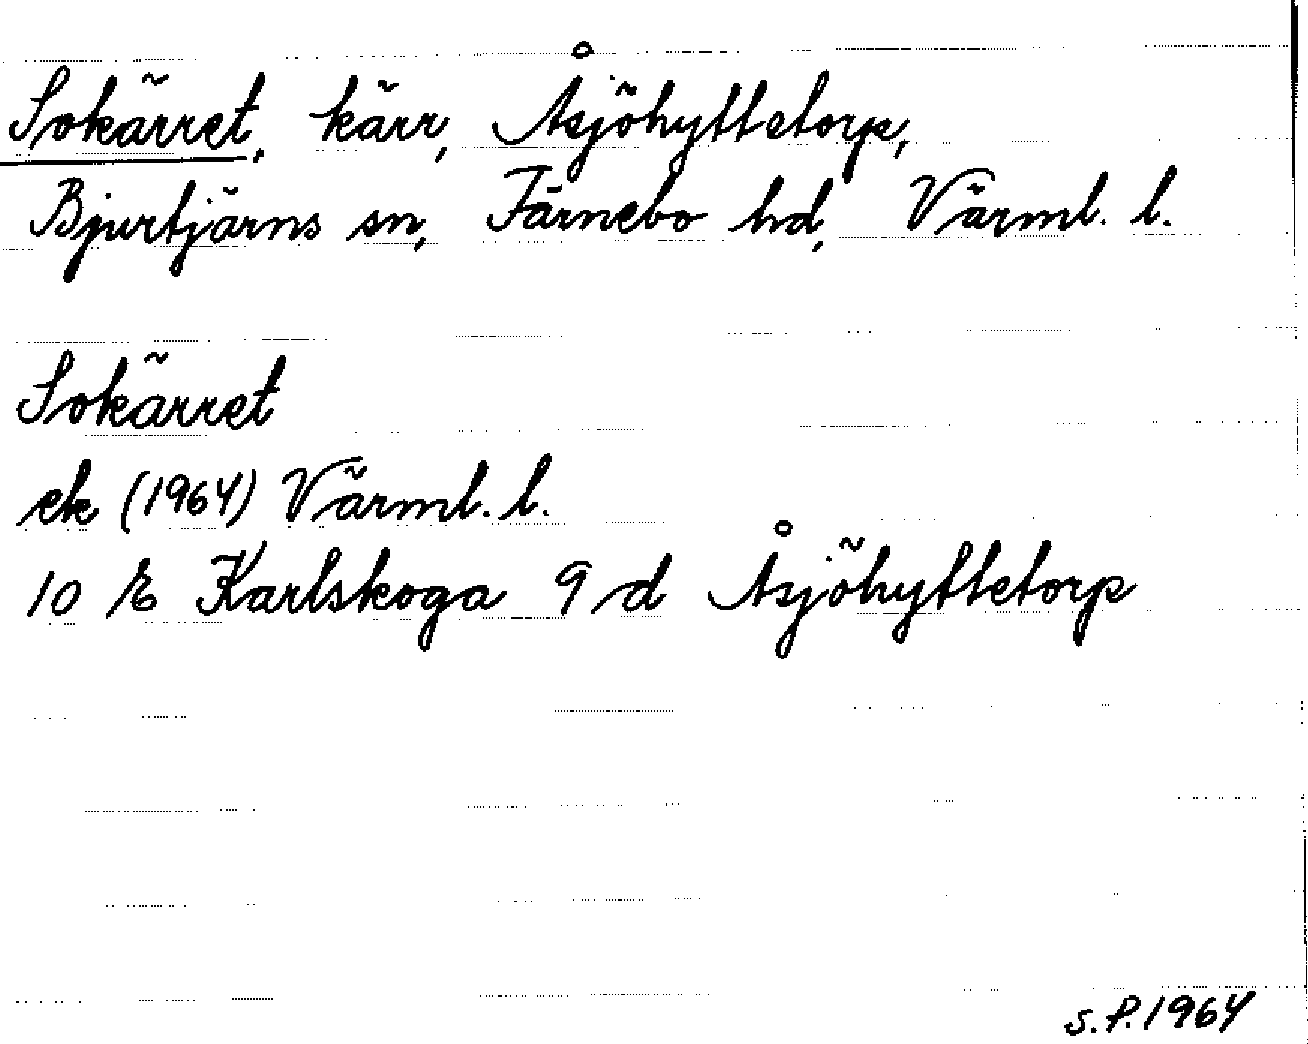 Sokärret, kärr, Åsjöhyttetorp,
Bjurtjärns sn, Färnebo hd, Värml. l.
Sokärret
ek (1964) Värml. l.
10 E Karlskoga 9 d Åsjöhyttetorp
S.P. 1964